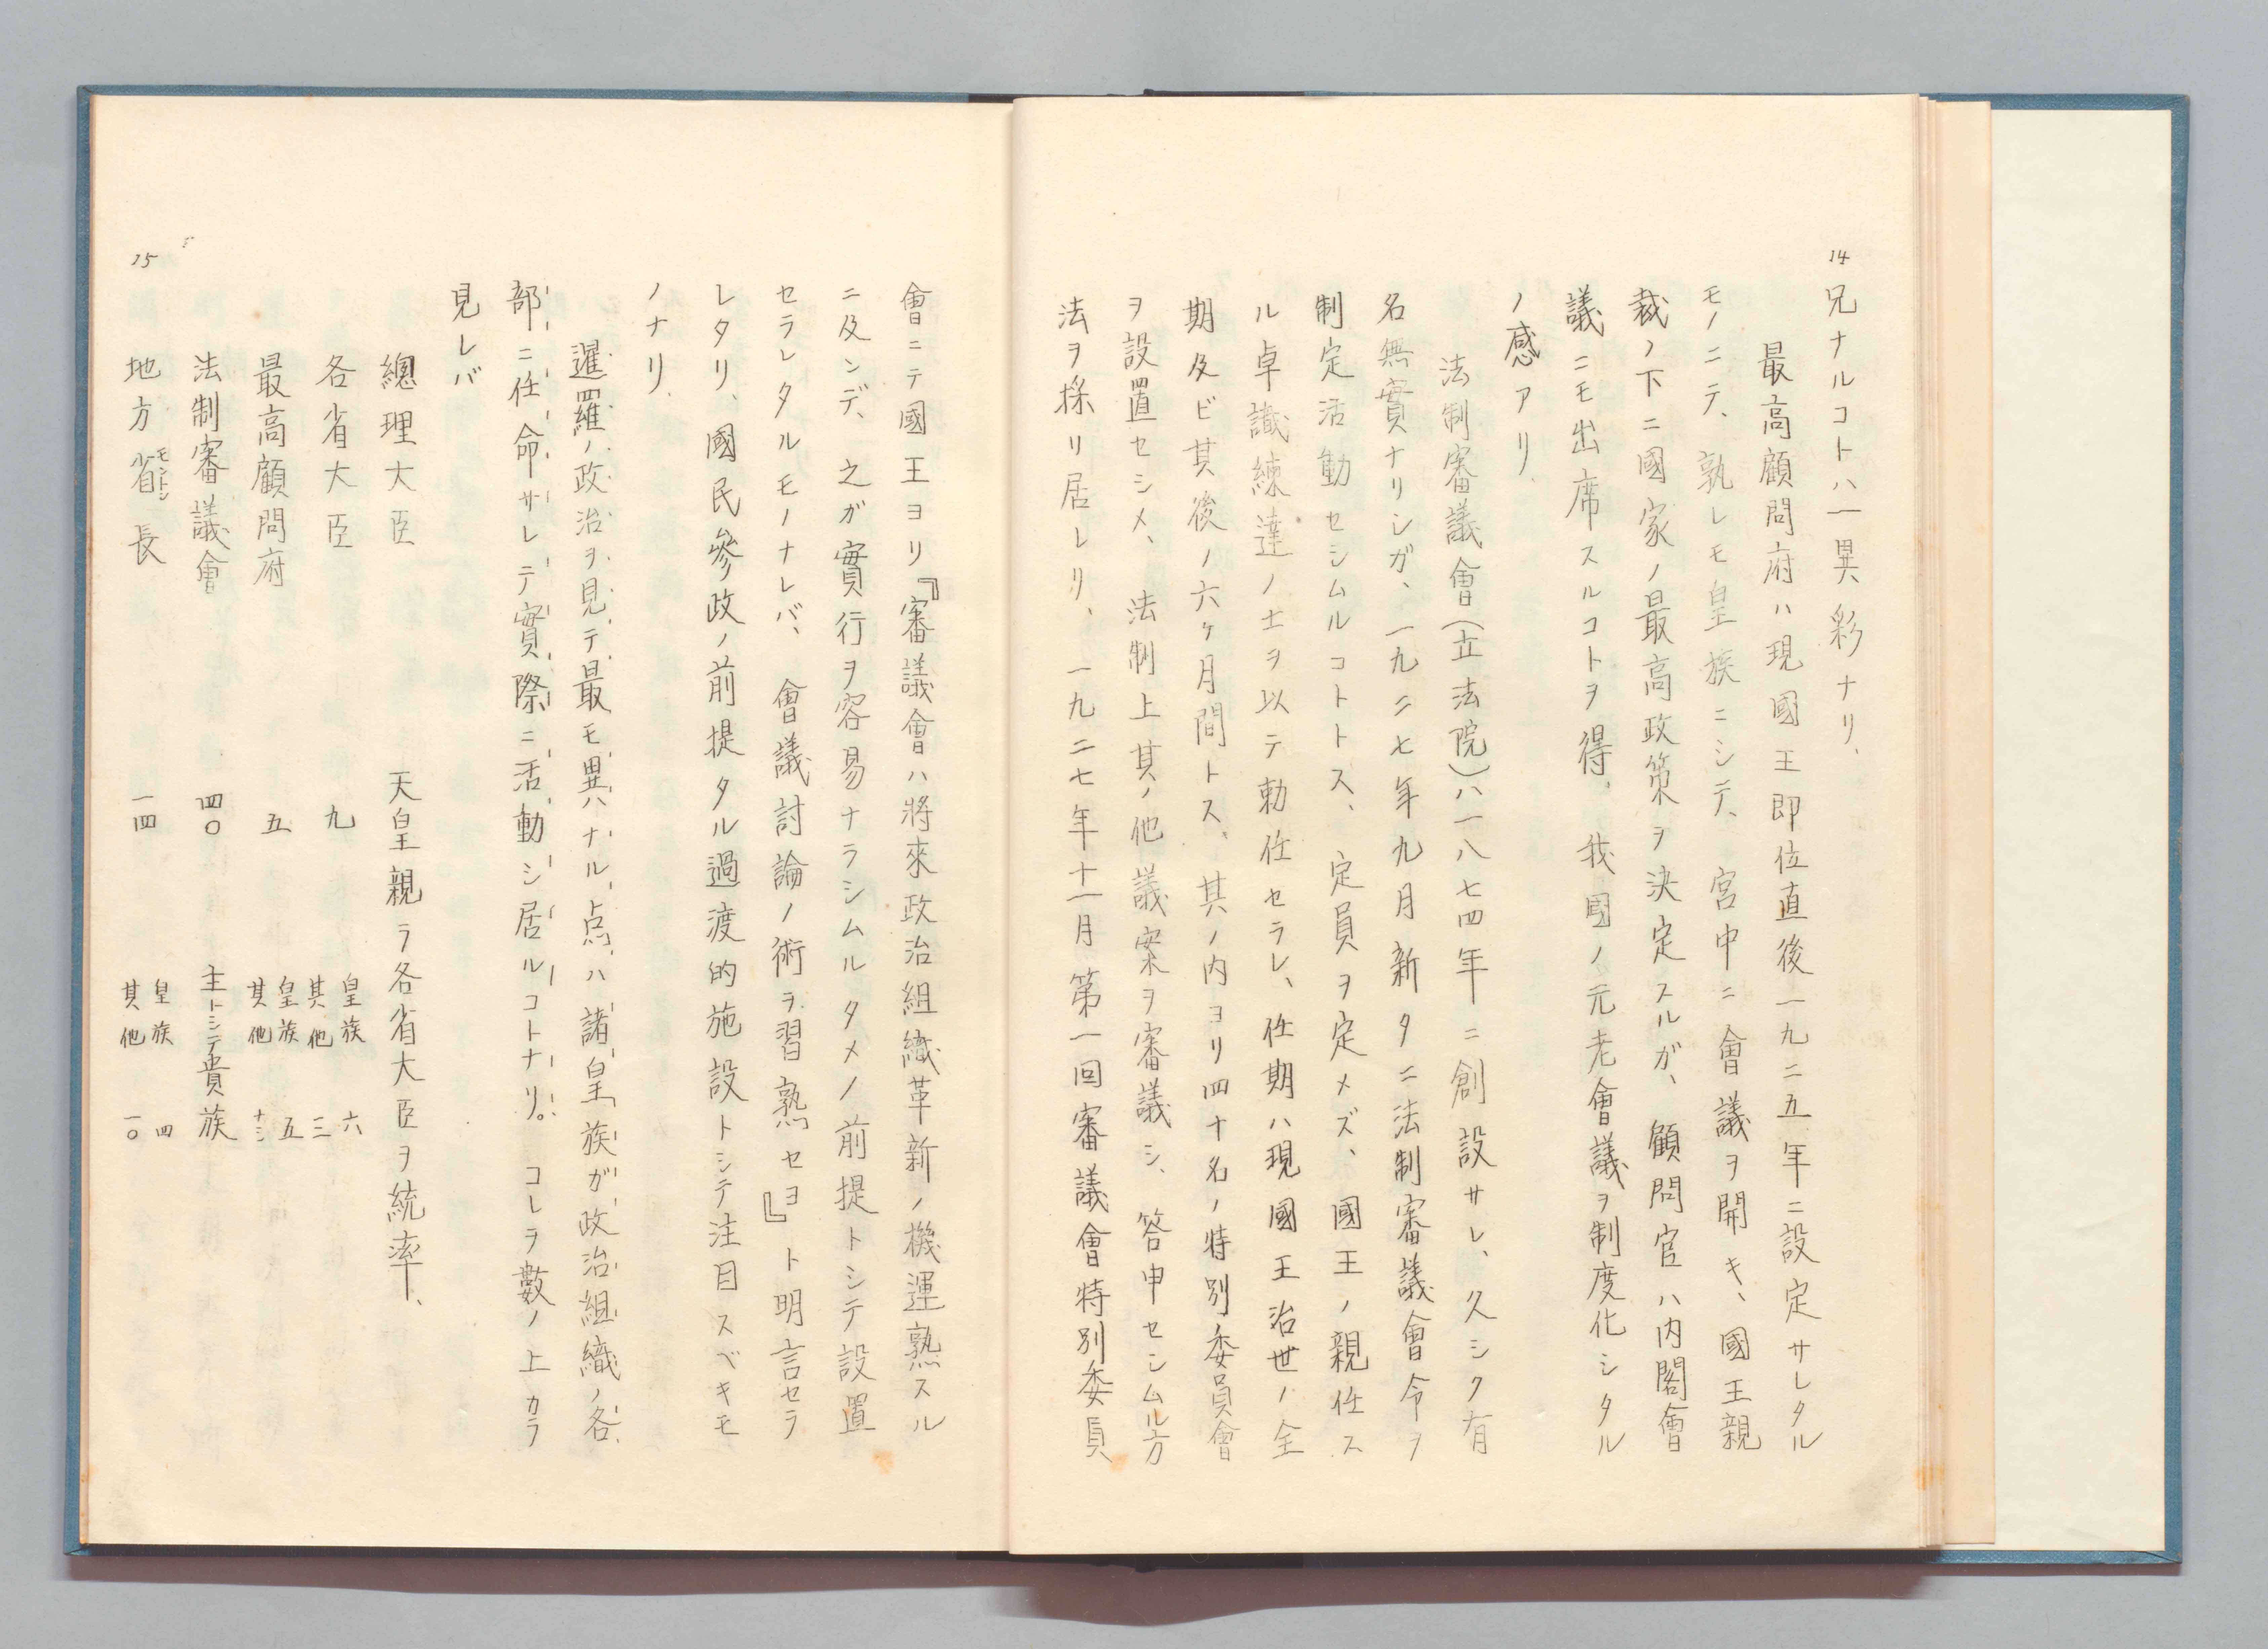 14
兄ナルコトハ一異彩ナリ、
最高顧問府ハ現國王即位直後一九二五年ニ設定サレタル
モノニテ、孰レモ皇族ニシテ、宮中ニ會議ヲ開キ、國王親
裁ノ下ニ國家ノ最高政策ヲ決定スルガ、顧問官ハ内閣會
議ニモ出席スルコトヲ得、我國ノ元老會議ヲ制度化シタル
ノ感アリ、
法制審議會(立法院)ハ一八七四年ニ創設サレ、久シク有
名無實ナリシガ、一九二七年九月新タニ法制審議會令ヲ
制定活動セシムルコトトス、定員ヲ定メズ、國王ノ親任ス
ル卓識練達ノ士ヲ以テ勅任セラレ、任期ハ現國王治世ノ全
期及ビ其後ノ六ケ月間トス、其ノ内ヨリ四十名ノ特別委員會
ヲ設置セシメ、法制上其ノ他議案ヲ審議シ、答申セシムル方
法ヲ採リ居レリ、一九二七年十一月第一回審議會特別委員
會ニテ國王ヨリ『審議會ハ將來政治組織革新ノ機運熟スル
ニ及ンデ、之ガ實行ヲ容易ナラシムルタメノ前提トシテ設置
セラレタルモノナレバ、會議討論ノ術ヲ習熟セヨ』ト明言セラ
レタリ、國民參政ノ前提タル過渡的施設トシテ注目スベキモ
ノナリ、
暹羅ノ政治ヲ見テ最モ異ハナル点ハ諸皇族ガ政治組織ノ各
部ニ任命サレテ實際ニ活動シ居ルコトナリ。コレヲ數ノ上カラ
見レバ
總理大臣 天皇親ラ各省大臣ヲ統率、
各省大臣 九 皇族 六 其他 三
最高顧問府 五 皇族 五 其他
法制審議會 四〇 主トシテ貴族
地方省長 一四 皇族 四 其他 一〇
モントン
15